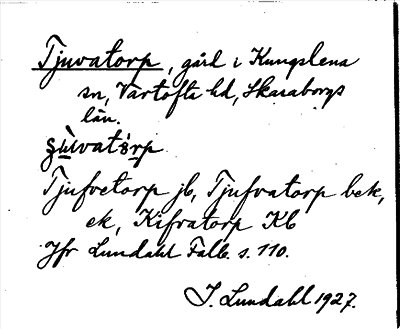 Tjuvatorp, gård i Kungslena
sn, Vartofta hd, Skaraborgs
län.
Tjufvetorp jb, Tjufvatorp bek,
ek, Kifvatorp Kb
Jfr Lundahl Falb. s. 110.
I. Lundahl 1927.